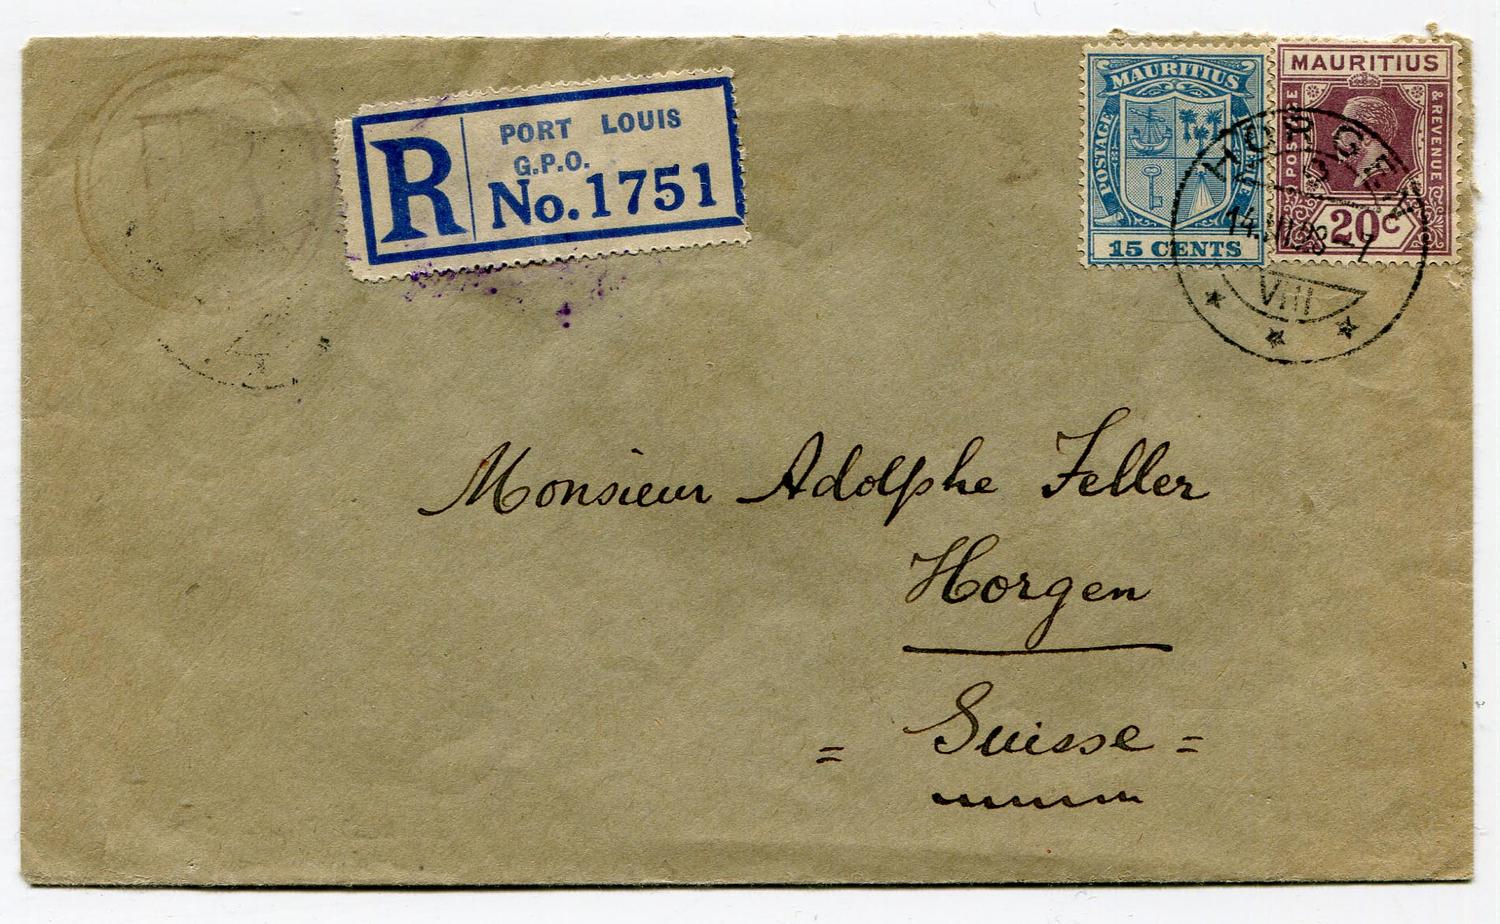 R
PORT LOUIS
G.P.O.
No. 1751
MAURITIUS
POSTAGE
15 CENTS
MAURITIUS
POSTAGE
& REVENUE
20c
HORGEN
VIII
Monsieur Adolphe Feller
Horgen
= Suisse =